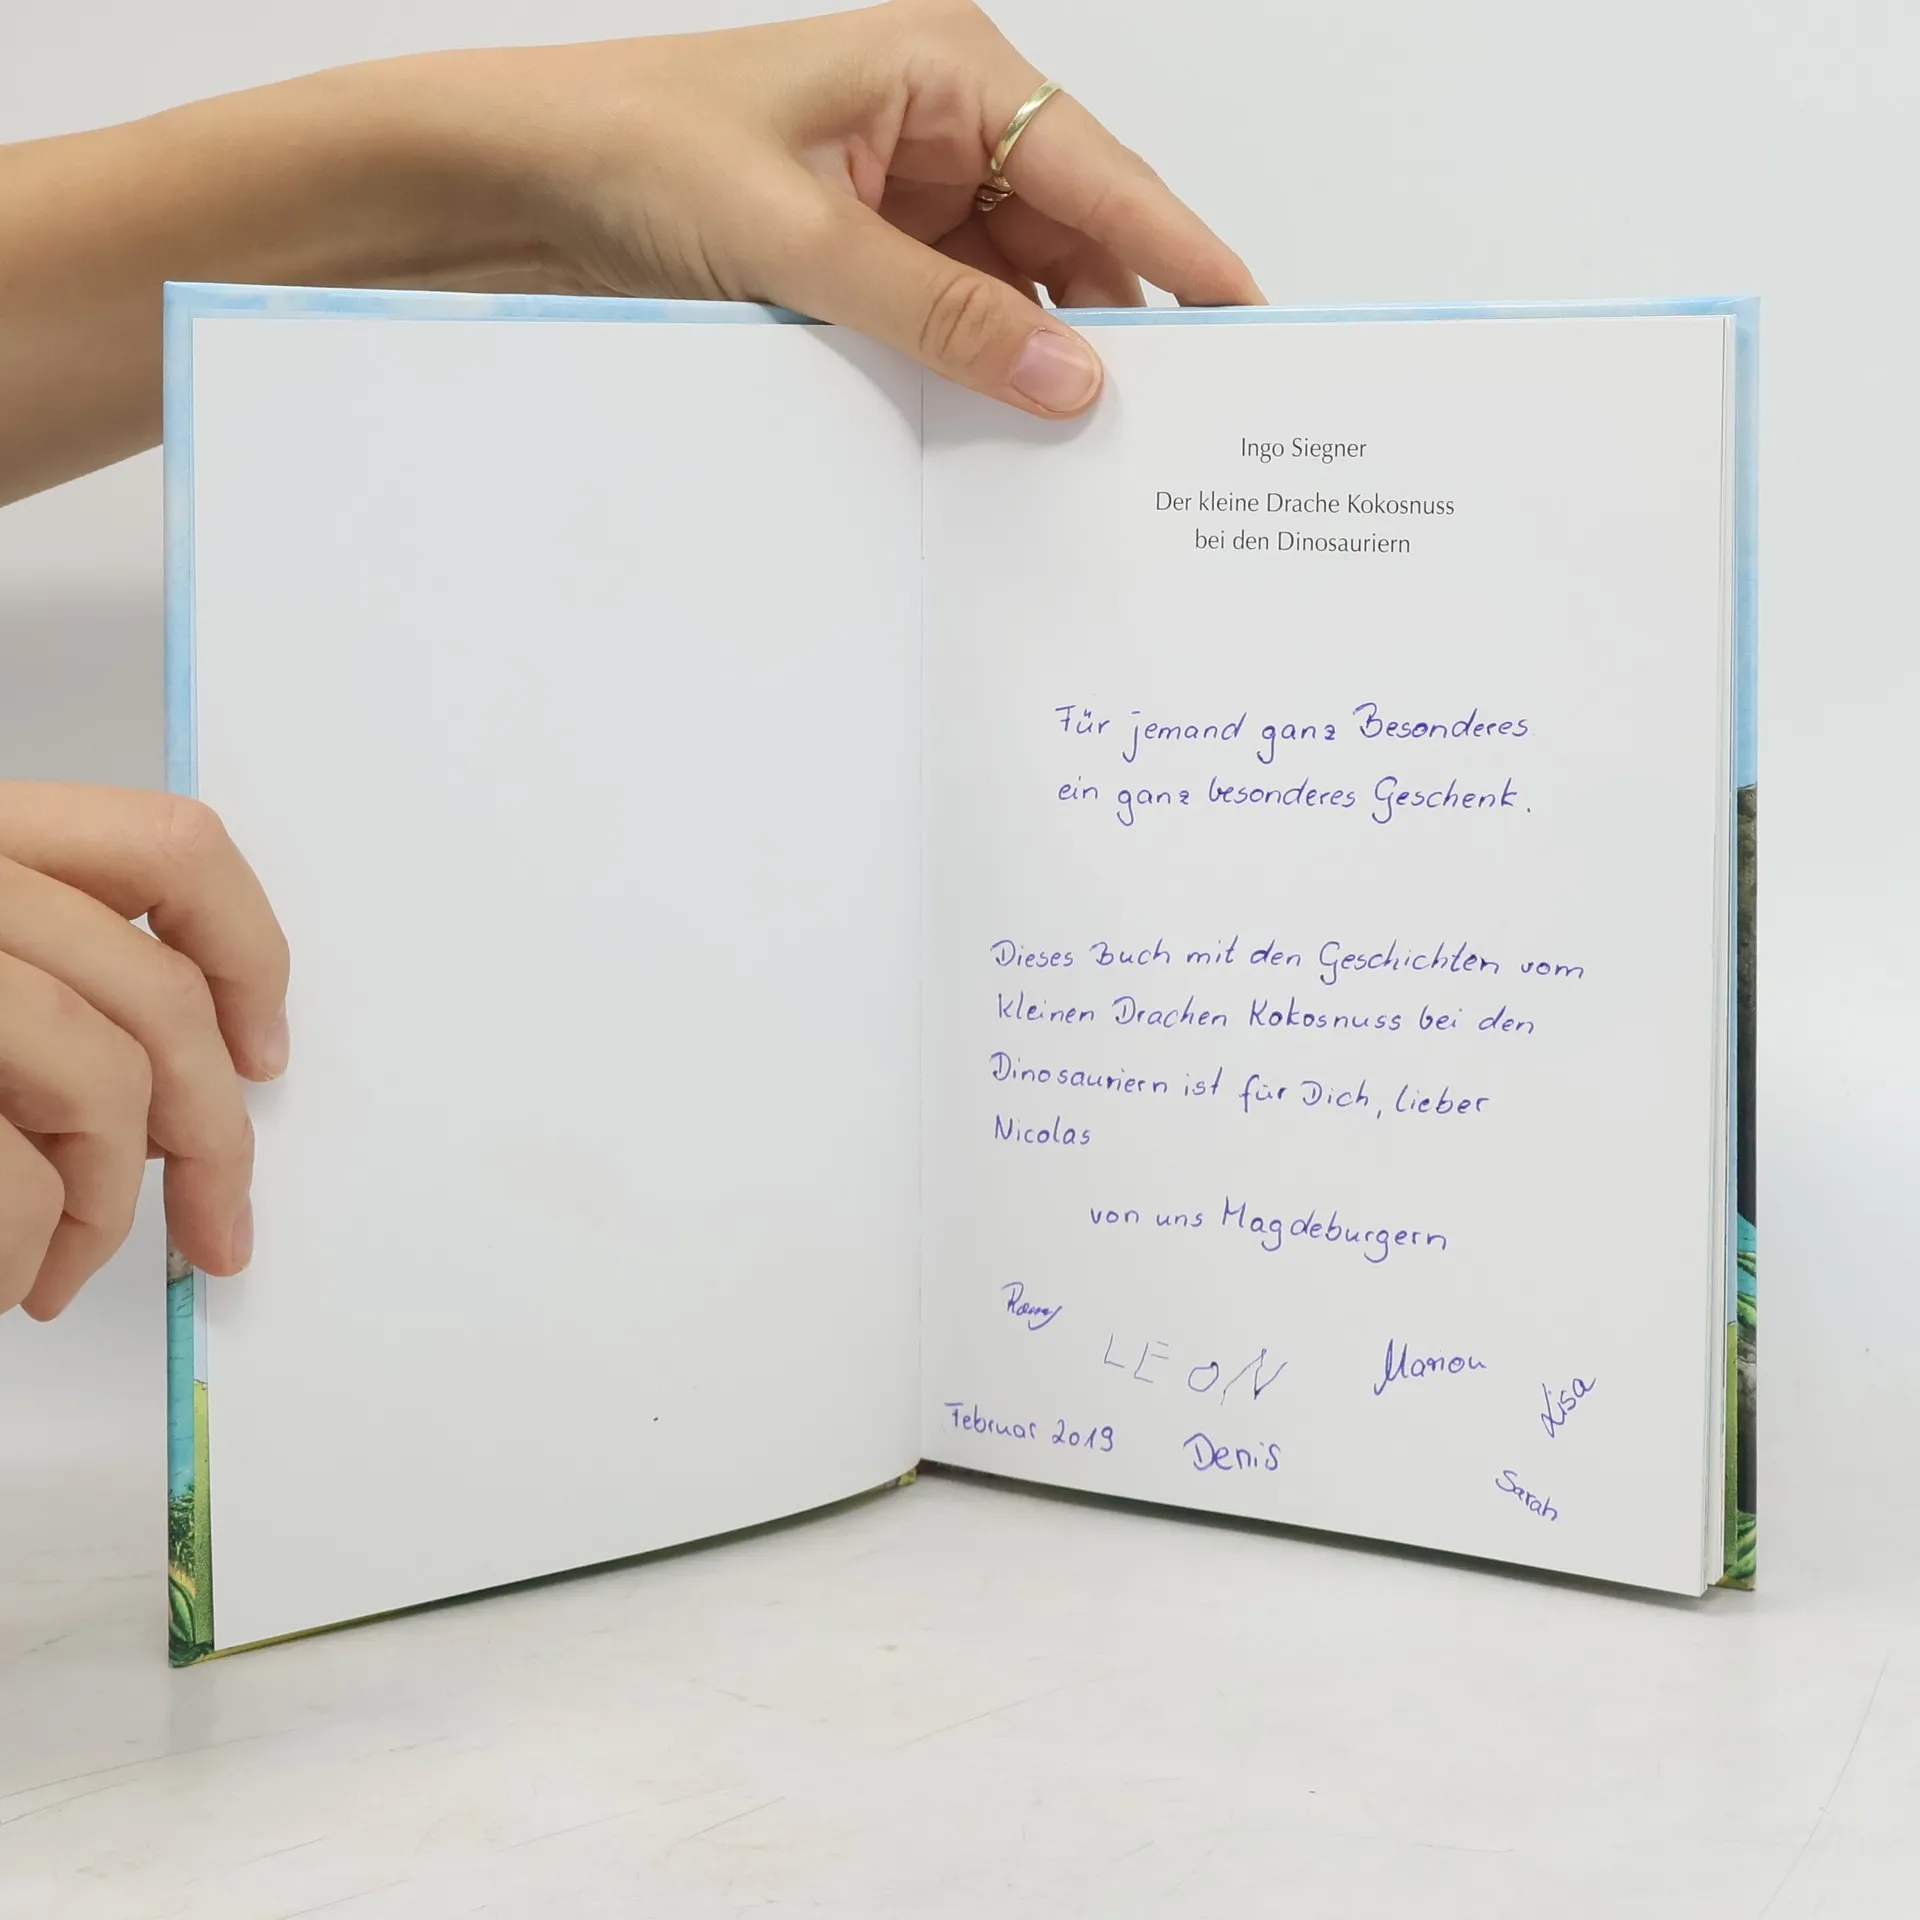 Ingo Siegner
Der kleine Drache Kokosnuss
bei den Dinosauriern
Für jemand ganz Besonderes
ein ganz besonderes Geschenk.
Dieses Buch mit den Geschichten vom
kleinen Drachen Kokosnuss bei den
Dinosauriern ist für Dich, lieber
Nicolas
von uns Magdeburgern
LEON
Manou
Lisa
Februar 2019
Denis
Sarah